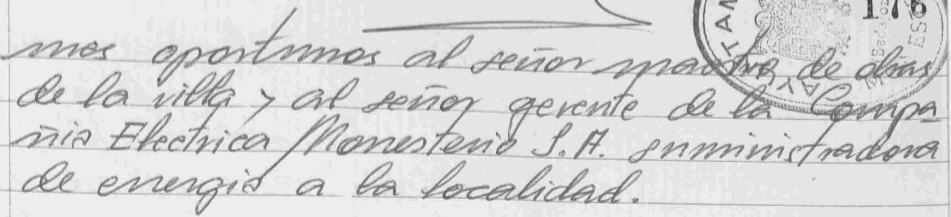 176
mos oportunos al señor maestro de obras
de la villa y al señor gerente de la Compa
ñia Electrica Monesterio S.A. suministradora
de energia a la localidad.